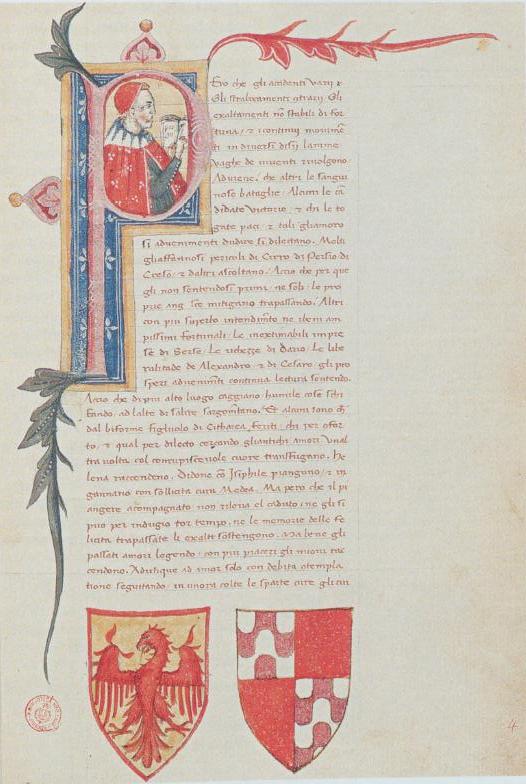 Pero che gli accidenti varii &
Gli straboccamenti &trarii. Gli
exaltamenti nõ stabili di for
tuna, & continui movimẽ
ti in diversi disij lanime
vaghe de viventi rivolgono.
Adviene. che altri le sangui
nose battaglie. Alcuni le cã
didate victorie. & chi le to
gate paci. & tali gliamoro
si advenimenti dudire si dilectano. Molti
gliaffannosi pericoli di Cirro di Persio di
Creso. & daltri ascoltano. Accio che per que
gli non sentendosi primi. ne soli. le pro
prie ang sce mitigano trapassando. Altri
con piu superbo intendimẽto ne beni am
plissimi fortunali. Le inextimabili impre
se di Serse. Le richeze di dario. Le libe
ralitade de Alexandro. & di Cesare. gli pro
speri advenimẽti continua lectura sentendo.
Accio che di piu alto luogo caggiano. humile cose schi
fando, ad lalte di salire sargomẽtano. Et alcuni sono ch
dal biforme figliuolo di Citharea feriti. chi per cõfor
to, & qual per dilecto cercando gliantichi amori Unal
tra volta col concupiscevole cuore transfugano. He
lena raccendono. Didone cõ Isiphile piangono. & in
gannano con sollicita cura Medea. Ma pero che il pi
angere acompagnato non rileva el caduto. ne gli si
puo per indugio tor tempo, ne le memorie delle fe
licita trapassate li exalti sostengono. Ma bene gli
passati amori legendo. con piu piaceri gli nuovi rac
cendono. Adunque ad amor solo con debita cõtempla
tione seguitando. in unora colte le sparte cure gli cui
4